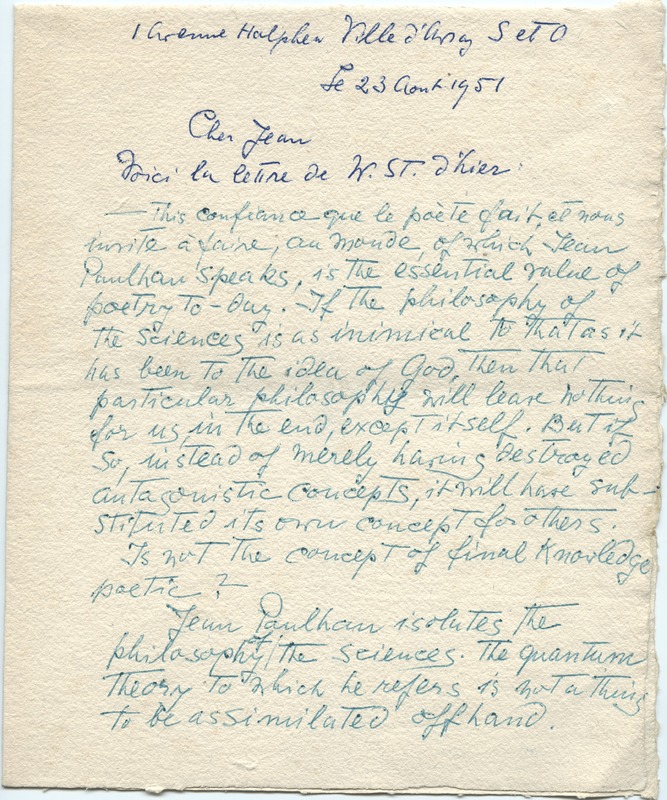 1 Avenue Halphen Ville d'Avray S et O
Le 23 Août 1951
Cher Jean
Voici la lettre de W. ST. d'hier:
— This confiance que le poète fait, et nous
invite à faire, au monde, of which Jean
Paulhan speaks, is the essential value of
poetry to-day. If the philosophy of
the sciences is as inimical to that as it
has been to the idea of God, then that
particular philosophy will leave nothing
for us, in the end, except itself. But if
so, instead of merely having destroyed
antagonistic concepts, it will have sub-
stituted its own concept for others.
Is not the concept of final knowledge
poetic?
Jean Paulhan isolates the
philosophy of the sciences. The quantum
theory to which he refers is not a thing
to be assimilated offhand.